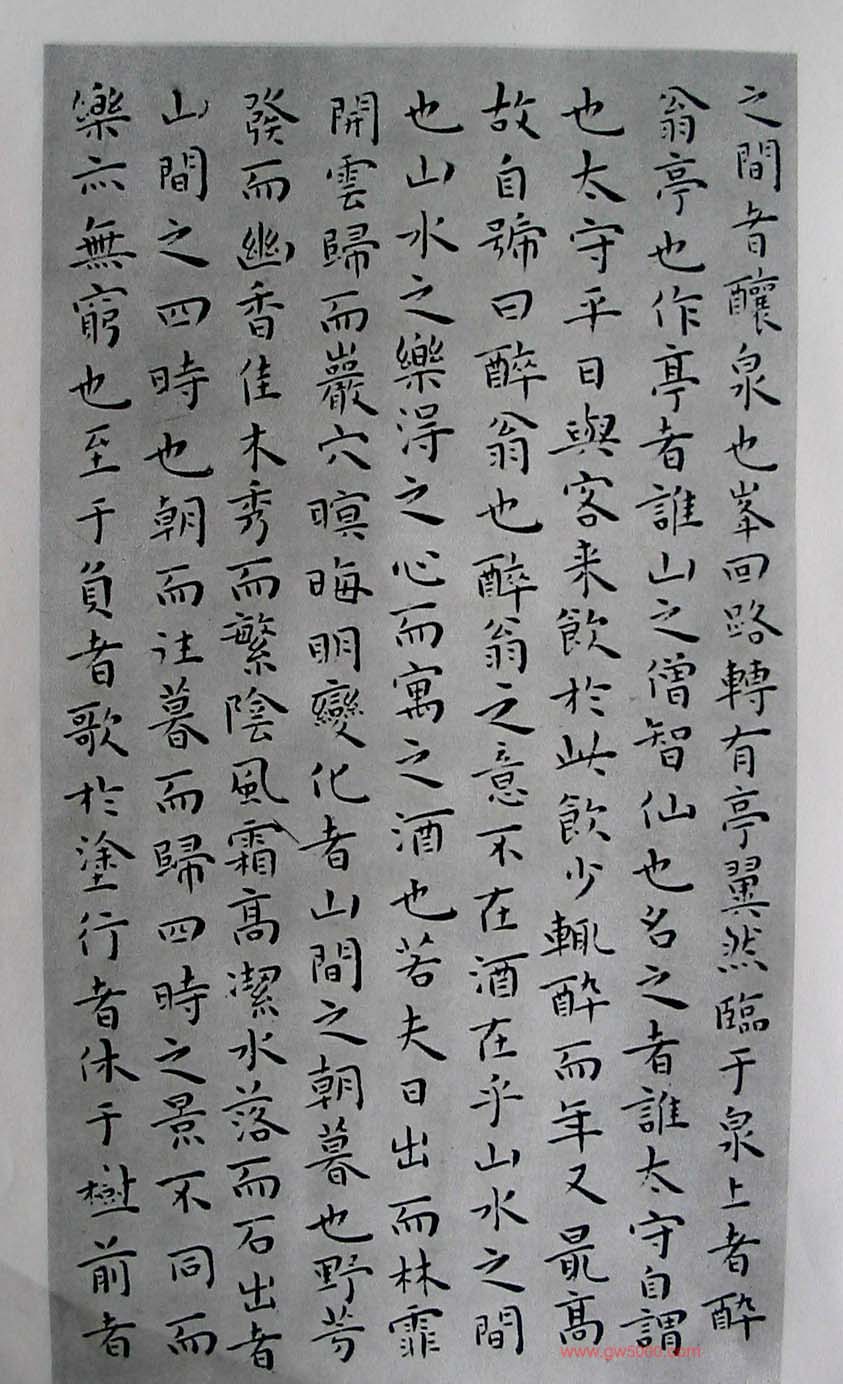 之間者釀泉也峯回路轉有亭翼然臨于泉上者醉
翁亭也作亭者誰山之僧智仙也名之者誰太守自謂
也太守平日與客来飲於此飲少輒醉而年又最高
故自號曰醉翁也醉翁之意不在酒在乎山水之間
也山水之樂淂之心而寓之酒也若夫日出而林霏
開雲歸而巖穴暝晦明變化者山間之朝暮也野芳
發而幽香佳木秀而繁陰風霜高潔水落而石出者
山間之四時也朝而往暮而歸四時之景不同而
樂亦無窮也至于負者歌於塗行者休于樹前者
www.gw5000.com